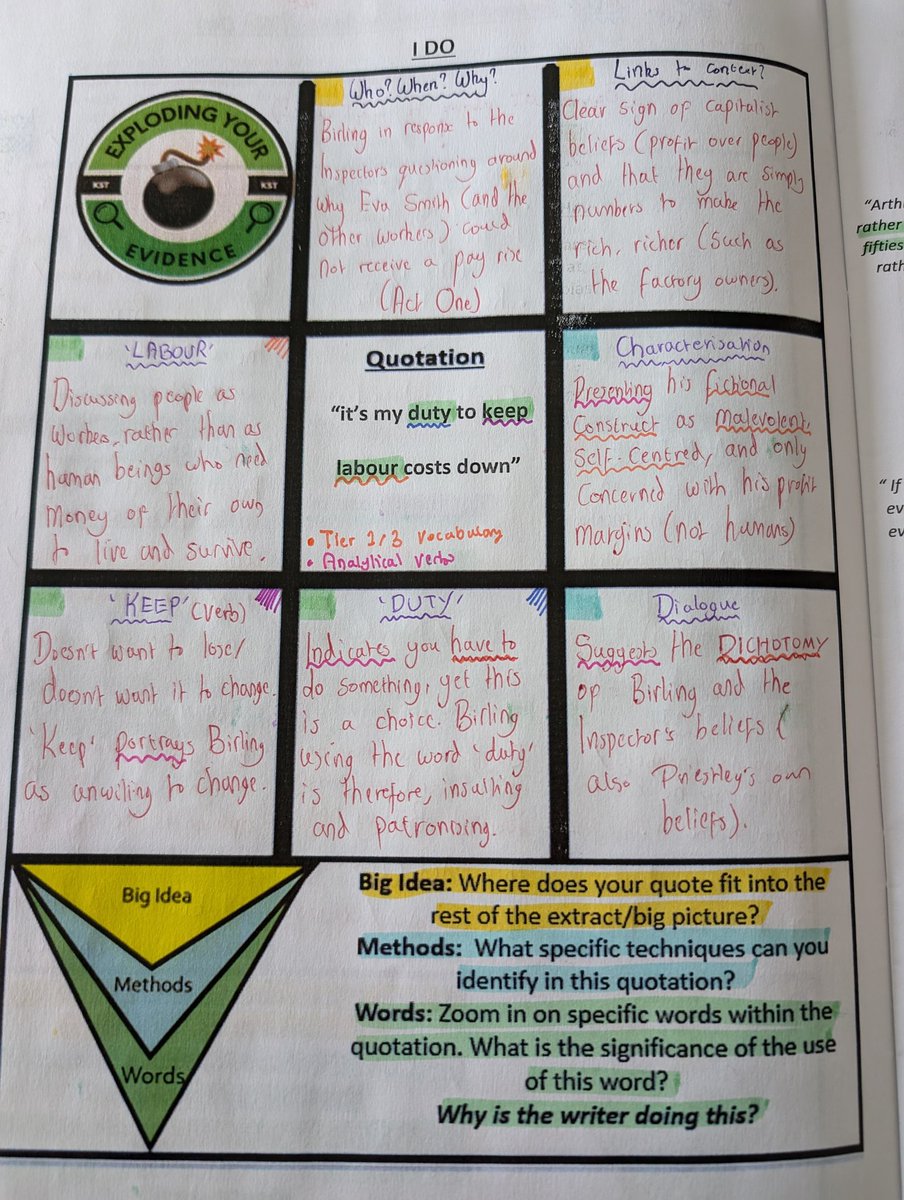 I DO
EXPLODING YOUR
KST KST
EVIDENCE
Who? When? Why?
Birling in response to the
Inspectors questioning around
why Eva Smith (and the
other workers) could
not receive a pay rise
(Act One)
Links to context?
Clear sign of capitalist
beliefs (profit over people)
and that they are simply
numbers to make the
rich, richer (such as
the factory owners).
'LABOUR'
Discussing people as
workers, rather than as
human beings who need
money of their own
to live and survive.
Quotation
“it's my duty to keep
labour costs down”
• Tier 2/3 vocabulary
• Analytical verbs
Characterisation
Presenting his fictional
construct as malevolent,
self-centred, and only
concerned with his profit
margins (not humans)
'KEEP' (verb)
Doesn't want to lose/
doesn't want it to change.
'Keep' portrays Birling
as unwiling to change.
'DUTY'
Indicates you have to
do something, yet this
is a choice. Birling
using the word 'duty'
is therefore, insulting
and patronising.
Dialogue
Suggests the DICHOTOMY
of Birling and the
Inspector's beliefs (
also Priestley's own
beliefs).
Big Idea
Methods
Words
Big Idea: Where does your quote fit into the
rest of the extract/big picture?
Methods: What specific techniques can you
identify in this quotation?
Words: Zoom in on specific words within the
quotation. What is the significance of the use
of this word?
Why is the writer doing this?
“Arth
rather
fifties
rath
“ If
ev
ev